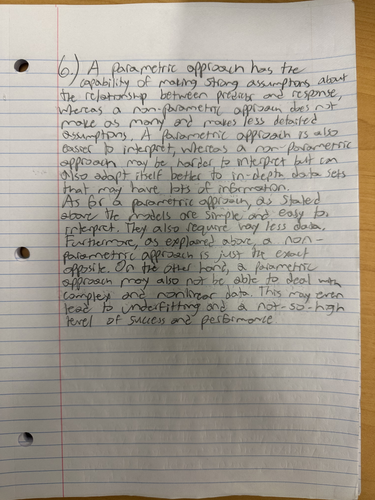 6.) A parametric approach has the
capability of making strong assumptions about
the relationship between predictor and response,
whereas a non-parametric approach does not
make as many and makes less detailed
assumptions. A parametric approach is also
easier to interpret, whereas a non-parametric
approach may be harder to interpret but can
also adapt itself better to in-depth data sets
that may have lots of information.
As for a parametric approach, as stated
above the models are simple and easy to
interpret. They also require way less data.
Furthermore, as explained above, a non-
parametric approach is just the exact
opposite. On the other hand, a parametric
approach may also not be able to deal with
complex and nonlinear data. This may even
lead to underfitting and a not-so-high
level of success and performance.